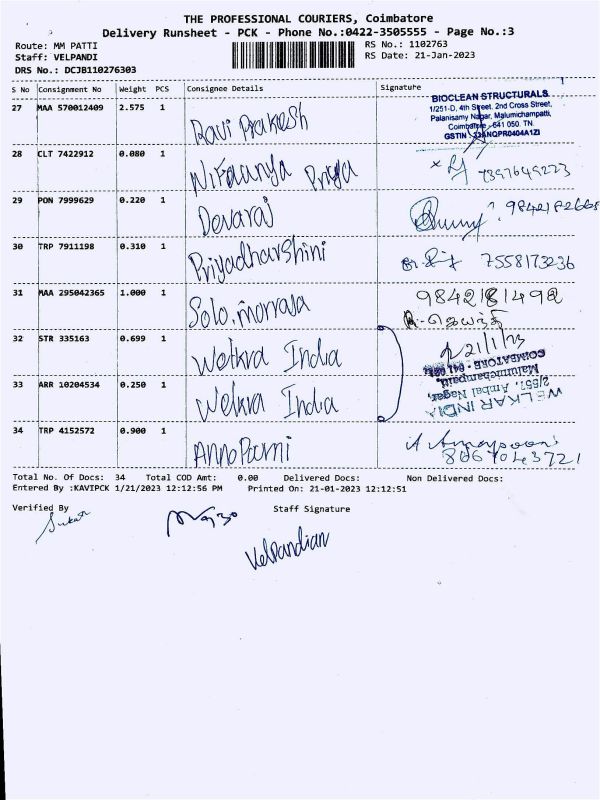 THE PROFESSIONAL COURIERS, Coimbatore
Delivery Runsheet - PCK - Phone No.:0422-3505555 - Page No.:3
Route: MM PATTI
RS No.: 1102763
Staff: VELPANDI
RS Date: 21-Jan-2023
DRS No.: DCJB110276303
S No Consignment No Weight PCS Consignee Details Signature
BIOCLEAN STRUCTURALS
1/251-D, 4th Street, 2nd Cross Street,
Palanisamy Nagar, Malumichampatti,
Coimbatore - 641 050. TN.
GSTIN : 33ANQPR0404A1ZI
27 MAA 570012409 2.575 1 Ravi Prakesh
28 CLT 7422912 0.080 1 Niraunya Priya 7397649223
29 PON 7999629 0.220 1 Devaraj 9842182665
30 TRP 7911198 0.310 1 Priyadharshini 7558173236
31 MAA 295042365 1.000 1 Solo.morraja 9842181498
R. ஜெயந்தி
21/1/23
32 STR 335163 0.699 1 Welkra India
33 ARR 10204534 0.250 1 Welkra India
WELKAR INDIA
2/551, Ambal Nagar,
Malumichampatti,
COIMBATORE - 641 050.
34 TRP 4152572 0.900 1 Anno Poorni
8067043721
Total No. Of Docs: 34 Total COD Amt: 0.00 Delivered Docs: Non Delivered Docs:
Entered By :KAVIPCK 1/21/2023 12:12:56 PM Printed On: 21-01-2023 12:12:51
Verified By Staff Signature
Velpandian